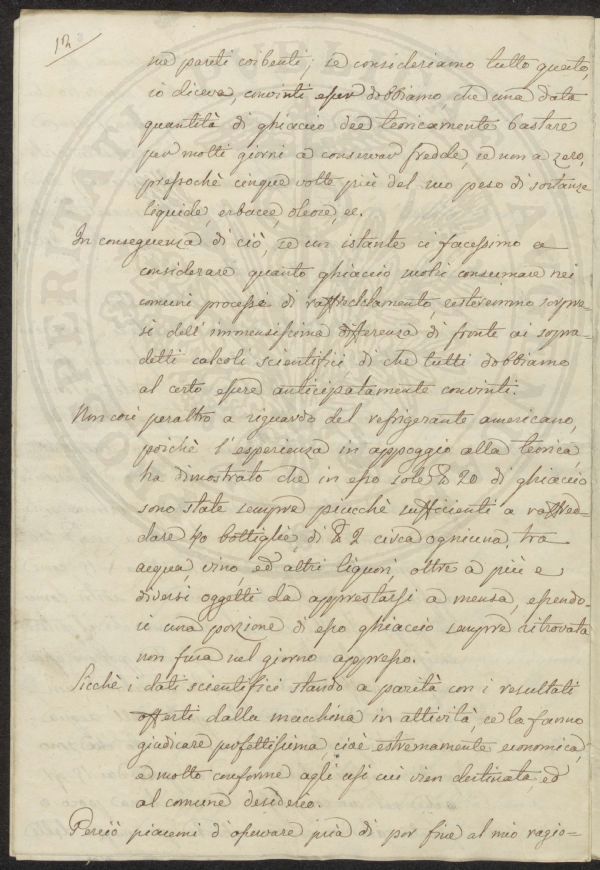 12
me pareti coibenti; se consideriamo tutto questo,
io diceva, convinti esser dobbiamo, che una data
quantità di ghiaccio dee teoricamente bastare
per molti giorni a conservar fredde, se non a zero,
pressochè cinque volte più del suo peso di sostanze
liquide, erbacee, oleose, ec.
In conseguenza di ciò, se un istante ci facessimo a
considerare quanto ghiaccio suolsi consumare nei
comuni processi di raffreddamento, resteremmo sorpre-
si dell'immensissima differenza di fronte ai sopra-
detti calcoli scientifici di che tutti dobbiamo
al certo essere anticipatamente convinti.
Non così peraltro a riguardo del refrigerante americano,
poichè l'esperienza in appoggio alla teorica
ha dimostrato che in esso sole ℔ 20 di ghiaccio
sono state sempre piucchè sufficienti a raffred-
dare 40 bottiglie, di ℔ 2 circa ogniuna, tra
acqua, vino, ed altri liquori, oltre a più e
diversi oggetti da apprestarsi a mensa, essendo-
si una porzione di esso ghiaccio sempre ritrovata
non fusa nel giorno appresso.
Sicchè i dati scientifici stando a parità con i resultati
offerti dalla macchina in attività, ce la fanno
giudicare perfettissima, cioè estremamente economica,
e molto conforme agli usi cui vien destinata, ed
al comune desiderio.
Perciò piacemi d'osservare pria di por fine al mio ragio-